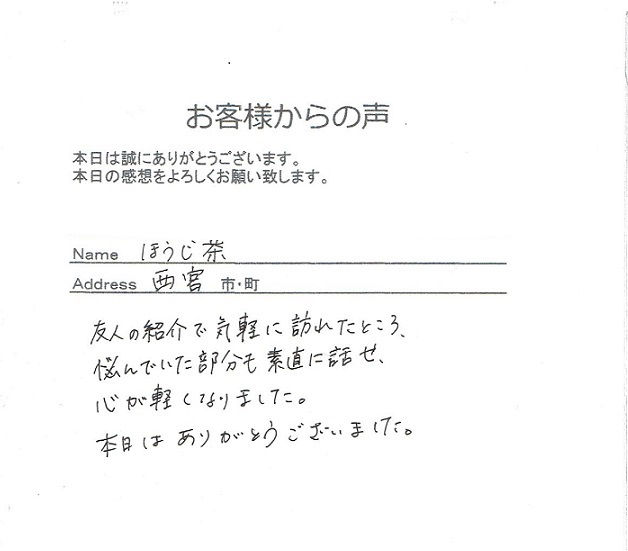 お客様からの声
本日は誠にありがとうございます。
本日の感想をよろしくお願い致します。
Name ほうじ茶
Address 西宮 市・町
友人の紹介で気軽に訪れたところ、
悩んでいた部分も素直に話せ、
心が軽くなりました。
本日はありがとうございました。